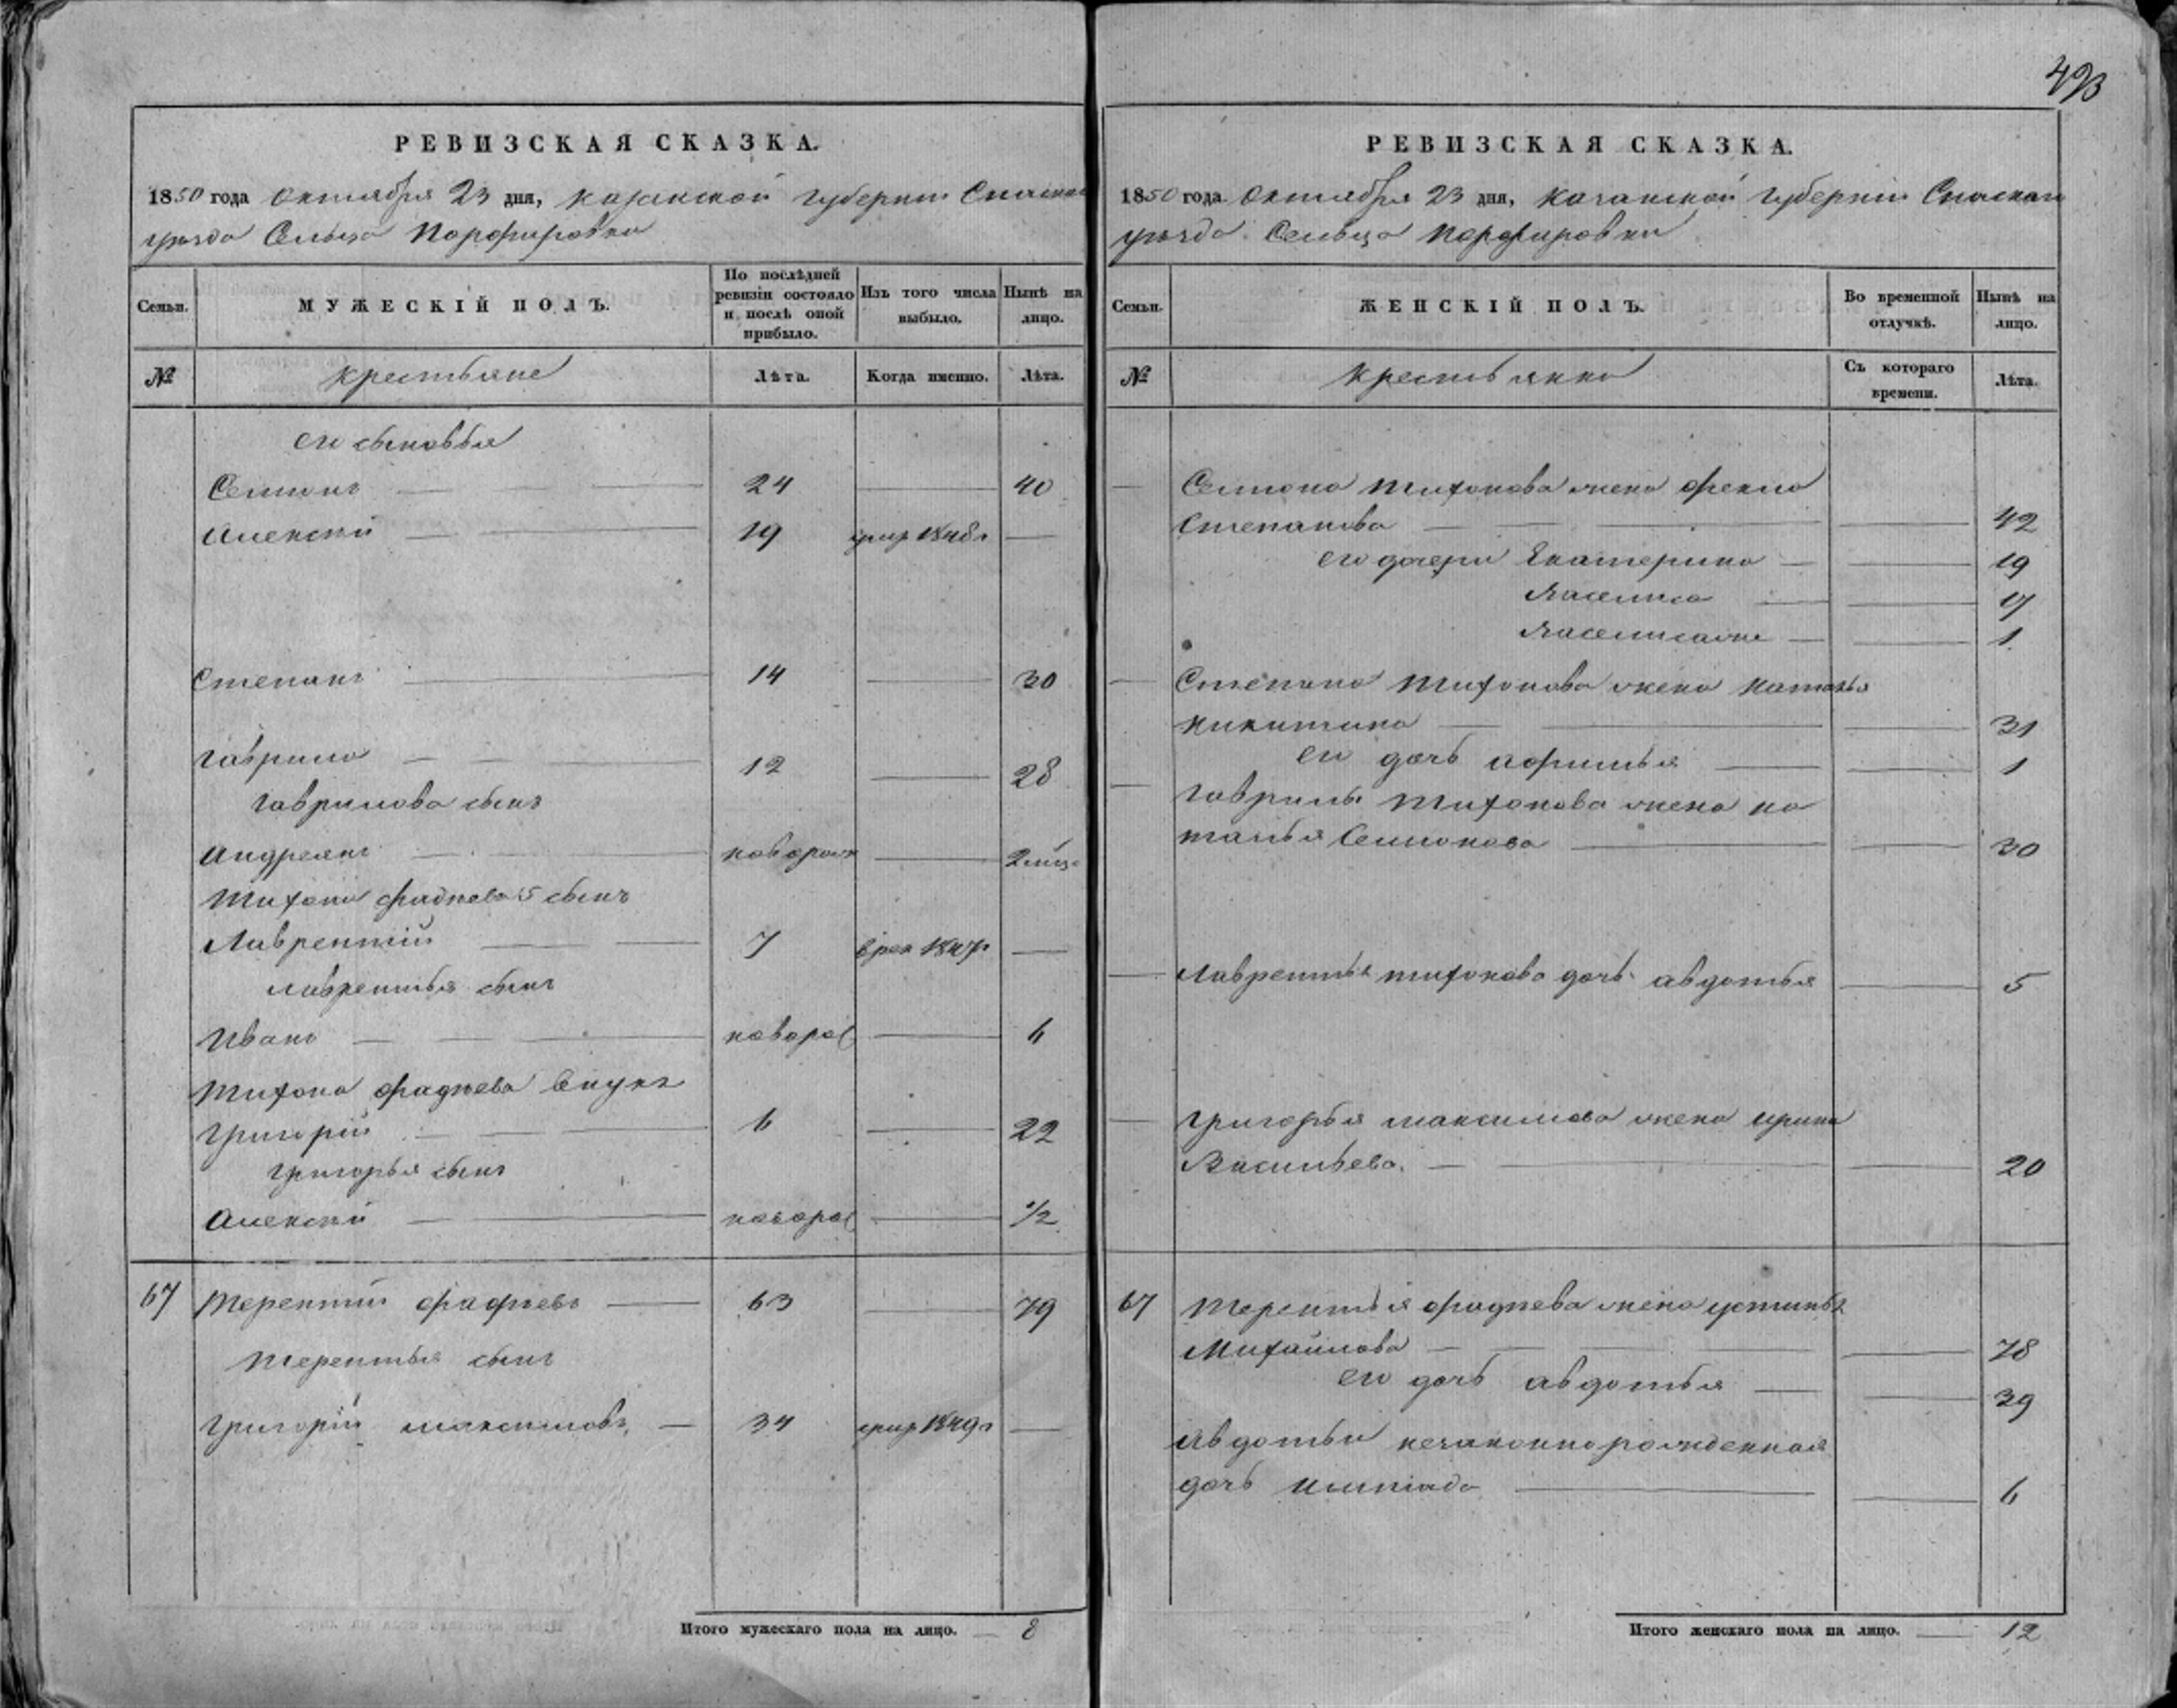 493
РЕВИЗСКАЯ СКАЗКА.
1850 года Октября 23 дня, Казанской Губернии Спаска
уѣзда Сельца Порфировки
Семьи.
МУЖЕСКІЙ ПОЛЪ.
По послѣдней ревизіи состояло и послѣ оной прибыло.
Изъ того числа выбыло.
Нынѣ на лицо.
№
Крестьяне
Лѣта.
Когда именно.
Лѣта.
его сыновья
Семионъ — 24 — 40
Алексѣй — 19 1848 —
Степанъ — 14 — 30
Гаврило — 12 — 28
Гаврилова сынъ
Андреянъ — новорож — 2 мѣц
Тихона Фадѣева 5 сынъ
Лаврентій — 7 1847 —
Лаврентья сынъ
Иванъ — новорож — 6
Тихона Фадѣева внукъ
Григорій — 6 — 22
Григорья сынъ
Алексѣй — новорож — 1/2
67 Терентій Фадѣевъ — 63 — 79
Терентья сынъ
Григорій Максимовъ — 34 1849 —
Итого мужескаго пола на лицо. — 8
РЕВИЗСКАЯ СКАЗКА.
1850 года Октября 23 дня, Казанской Губерніи Спаскаго
уѣзда Сельца Порфировки
Семьи.
ЖЕНСКІЙ ПОЛЪ.
Во временной отлучкѣ.
Нынѣ на лицо.
№
Крестьянки
Съ котораго времени.
Лѣта.
— Семиона Тихонова жена Фекла
Степанова — 42
его дочери Екатерина — 19
17
1
— Степана Тихонова жена Наталья
Никитина — 31
его дочь — 1
— Гаврилы Тихонова жена На
талья Семионова — 30
— Лаврентья Тихонова дочь Авдотья — 5
— Григорья Максимова жена Ирина
Васильева. — 20
67 Терентья Фадѣева жена Устинья
Михайлова — 78
его дочь Авдотья — 39
Авдотьи незаконнорожденная
дочь — 6
Итого женскаго пола на лицо. — 12